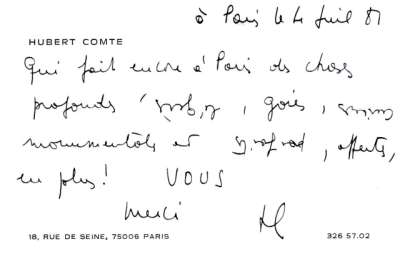 à Paris le 4 Juil 81
HUBERT COMTE
Qui fait encore à Paris des choses
profondes, gaies,
monumentales et, offertes,
en plus! VOUS
Merci H
18, RUE DE SEINE, 75006 PARIS 326 57.02